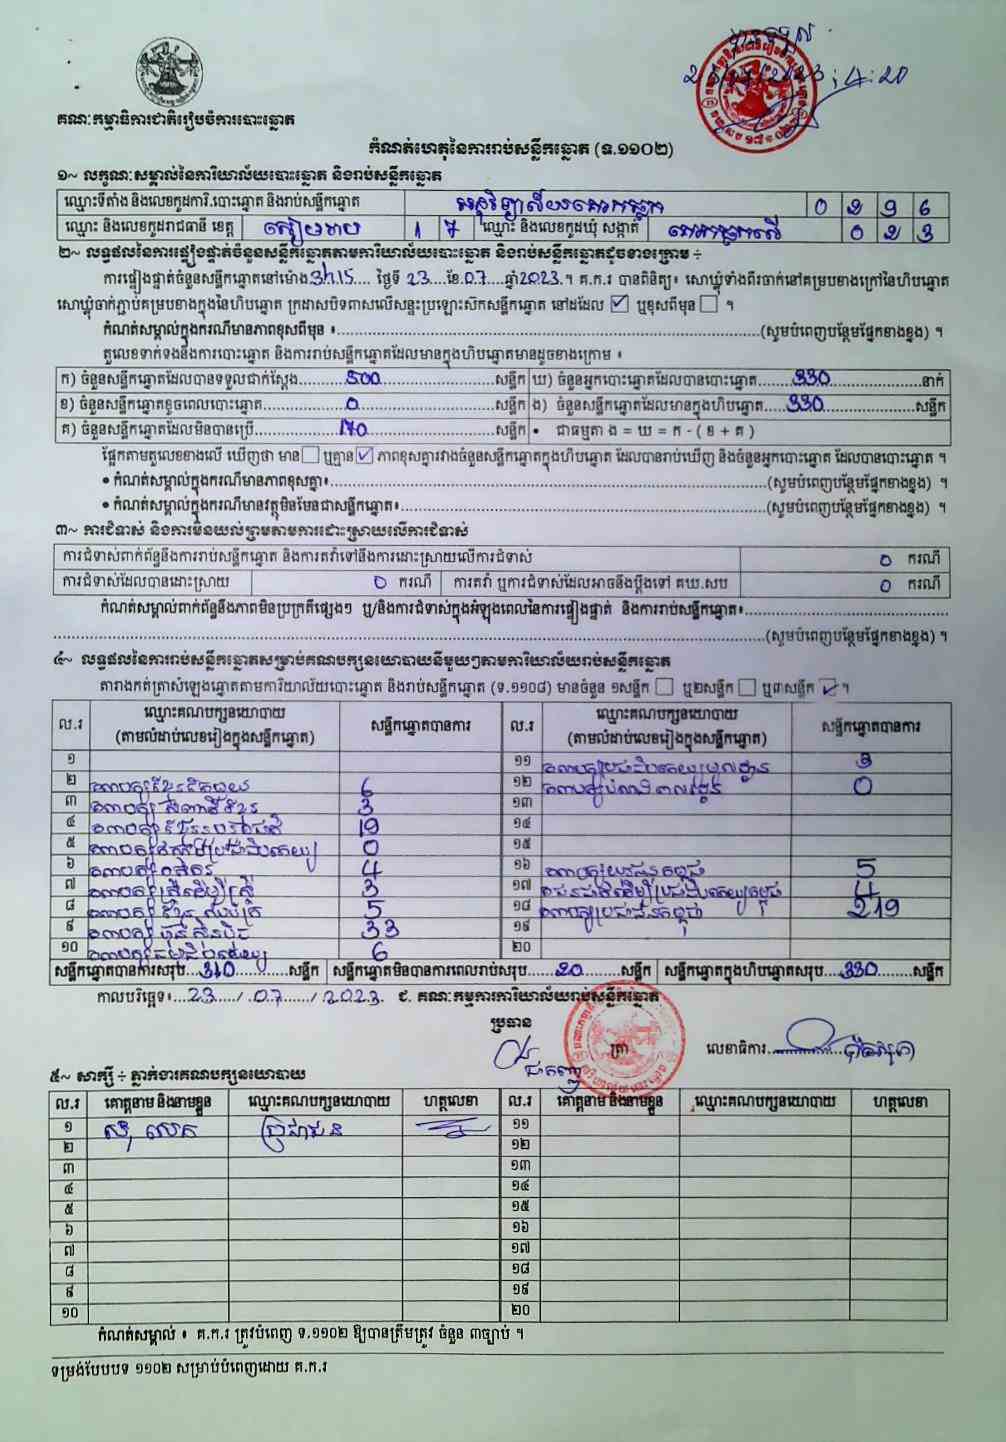 គណៈកម្មាធិការជាតិរៀបចំការបោះឆ្នោត
4:20
កំណត់ហេតុនៃការរាប់សន្លឹកឆ្នោត (ទ.១១០២)
១~ លក្ខណៈសម្គាល់នៃការិយាល័យបោះឆ្នោត និងរាប់សន្លឹកឆ្នោត
ឈ្មោះទីតាំង និងលេខកូដការិ.បោះឆ្នោត និងរាប់សន្លឹកឆ្នោត 0296
ឈ្មោះ និងលេខកូដរាជធានី ខេត្ត សៀមរាប 17 ឈ្មោះ និងលេខកូដឃុំ សង្កាត់ 023
២~ លទ្ធផលនៃការផ្ទៀងផ្ទាត់ចំនួនសន្លឹកឆ្នោតតាមការិយាល័យបោះឆ្នោត និងរាប់សន្លឹកឆ្នោតដូចខាងក្រោម ÷
ការផ្ទៀងផ្ទាត់ចំនួនសន្លឹកឆ្នោតនៅម៉ោង 3h15 ថ្ងៃទី 23 ខែ 07 ឆ្នាំ 2023 ។ គ.ក.រ បានពិនិត្យ៖ សោឃ្លុំទាំងពីរចាក់នៅគម្របខាងក្រៅនៃហិបឆ្នោត
សោឃ្លុំចាក់ភ្ជាប់គម្របខាងក្នុងនៃហិបឆ្នោត ក្រដាសបិទពាសលើសន្ទះប្រឡោះស៊កសន្លឹកឆ្នោត នៅដដែល ☑ ឬខុសពីមុន ☐ ។
កំណត់សម្គាល់ក្នុងករណីមានភាពខុសពីមុន ៖ (សូមបំពេញបន្ថែមផ្នែកខាងខ្នង) ។
តួលេខទាក់ទងនឹងការបោះឆ្នោត និងការរាប់សន្លឹកឆ្នោតដែលមានក្នុងហិបឆ្នោតមានដូចខាងក្រោម ៖
ក) ចំនួនសន្លឹកឆ្នោតដែលបានទទួលជាក់ស្តែង 500 សន្លឹក ឃ) ចំនួនអ្នកបោះឆ្នោតដែលបានបោះឆ្នោត 330 នាក់
ខ) ចំនួនសន្លឹកឆ្នោតខូចពេលបោះឆ្នោត 0 សន្លឹក ង) ចំនួនសន្លឹកឆ្នោតដែលមានក្នុងហិបឆ្នោត 330 សន្លឹក
គ) ចំនួនសន្លឹកឆ្នោតដែលមិនបានប្រើ 170 សន្លឹក • ជាធម្មតា ង = ឃ = ក - ( ខ + គ )
ផ្អែកតាមតួលេខខាងលើ ឃើញថា មាន ☐ ឬគ្មាន ☑ ភាពខុសគ្នារវាងចំនួនសន្លឹកឆ្នោតក្នុងហិបឆ្នោត ដែលបានរាប់ឃើញ និងចំនួនអ្នកបោះឆ្នោត ដែលបានបោះឆ្នោត ។
• កំណត់សម្គាល់ក្នុងករណីមានភាពខុសគ្នា៖ (សូមបំពេញបន្ថែមផ្នែកខាងខ្នង) ។
• កំណត់សម្គាល់ក្នុងករណីមានវត្ថុមិនមែនជាសន្លឹកឆ្នោត៖ (សូមបំពេញបន្ថែមផ្នែកខាងខ្នង) ។
៣~ ការជំទាស់ និងការមិនយល់ព្រមតាមការដោះស្រាយលើការជំទាស់
ការជំទាស់ពាក់ព័ន្ធនឹងការរាប់សន្លឹកឆ្នោត និងការតវ៉ាទៅនឹងការដោះស្រាយលើការជំទាស់ 0 ករណី
ការជំទាស់ដែលបានដោះស្រាយ 0 ករណី ការតវ៉ា ឬការជំទាស់ដែលអាចនឹងប្តឹងទៅ គឃ.សប 0 ករណី
កំណត់សម្គាល់ពាក់ព័ន្ធនឹងភាពមិនប្រក្រតីផ្សេងៗ ឬ/និងការជំទាស់ក្នុងអំឡុងពេលនៃការផ្ទៀងផ្ទាត់ និងការរាប់សន្លឹកឆ្នោត៖
(សូមបំពេញបន្ថែមផ្នែកខាងខ្នង) ។
៤~ លទ្ធផលនៃការរាប់សន្លឹកឆ្នោតសម្រាប់គណបក្សនយោបាយនីមួយៗតាមការិយាល័យរាប់សន្លឹកឆ្នោត
តារាងកត់ត្រាសំឡេងឆ្នោតតាមការិយាល័យបោះឆ្នោត និងរាប់សន្លឹកឆ្នោត (ទ.១១០៨) មានចំនួន ១សន្លឹក ☐ ឬ២សន្លឹក ☐ ឬ៣សន្លឹក ☑ ។
ល.រ ឈ្មោះគណបក្សនយោបាយ (តាមលំដាប់លេខរៀងក្នុងសន្លឹកឆ្នោត) សន្លឹកឆ្នោតបានការ ល.រ ឈ្មោះគណបក្សនយោបាយ (តាមលំដាប់លេខរៀងក្នុងសន្លឹកឆ្នោត) សន្លឹកឆ្នោតបានការ
១ ១១ គណបក្សប្រជាធិបតេយ្យមូលដ្ឋាន 3
២ គណបក្ស 6 ១២ គណបក្ស 0
៣ គណបក្ស 3 ១៣
៤ គណបក្ស 19 ១៤
៥ គណបក្ស 0 ១៥
៦ គណបក្ស 4 ១៦ គណបក្សយុវជនកម្ពុជា 5
៧ គណបក្ស 3 ១៧ 4
៨ គណបក្ស 5 ១៨ គណបក្សប្រជាជនកម្ពុជា 219
៩ គណបក្សហ៊្វុនស៊ិនប៉ិច 33 ១៩
១០ គណបក្ស 6 ២០
សន្លឹកឆ្នោតបានការសរុប 310 សន្លឹក សន្លឹកឆ្នោតមិនបានការពេលរាប់សរុប 20 សន្លឹក សន្លឹកឆ្នោតក្នុងហិបឆ្នោតសរុប 330 សន្លឹក
កាលបរិច្ឆេទ៖ 23 / 07 / 2023 ជ. គណៈកម្មការការិយាល័យរាប់សន្លឹកឆ្នោត
ប្រធាន
ត្រា
លេខាធិការ
៥~ សាក្សី ÷ ភ្នាក់ងារគណបក្សនយោបាយ
ល.រ គោត្តនាម និងនាមខ្លួន ឈ្មោះគណបក្សនយោបាយ ហត្ថលេខា ល.រ គោត្តនាម និងនាមខ្លួន ឈ្មោះគណបក្សនយោបាយ ហត្ថលេខា
១ ប្រជាជន ១១
២ ១២
៣ ១៣
៤ ១៤
៥ ១៥
៦ ១៦
៧ ១៧
៨ ១៨
៩ ១៩
១០ ២០
កំណត់សម្គាល់ ៖ គ.ក.រ ត្រូវបំពេញ ទ.១១០២ ឱ្យបានត្រឹមត្រូវ ចំនួន ៣ច្បាប់ ។
ទម្រង់បែបបទ ១១០២ សម្រាប់បំពេញដោយ គ.ក.រ